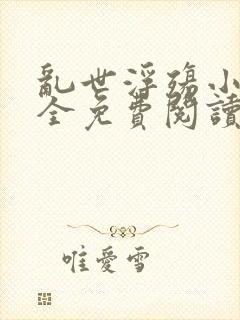 亂世浮殤小
全免費閱讀
唯愛雪